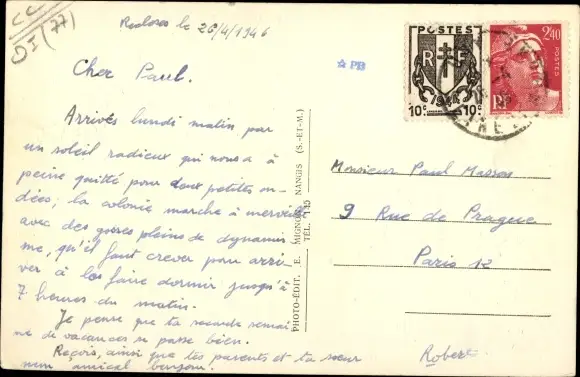 CC
DI (77)
Recloses le 26/4/1946
Cher Paul.
Arrivés lundi matin par
un soleil radieux qui nous a à
peine quitté pour deux petites on-
dées; la colonie marche à merveille
avec des gosses pleins de dynamis
me, qu'il faut crever pour arri-
ver à les faire dormir jusqu'à
7 heures du matin.
Je pense que ta seconde semai
ne de vacances se passe bien.
Reçois, ainsi que tes parents et ta sœur
mon amical bonjour.
Robert
PB
PHOTO-ÉDIT. E. MIGNON, NANGIS (S.-ET-M.)
TÉL. 145
POSTES
RF
10c 10c
2f40
POSTES
RF
Monsieur Paul Masson
9 Rue de Prague
Paris 12